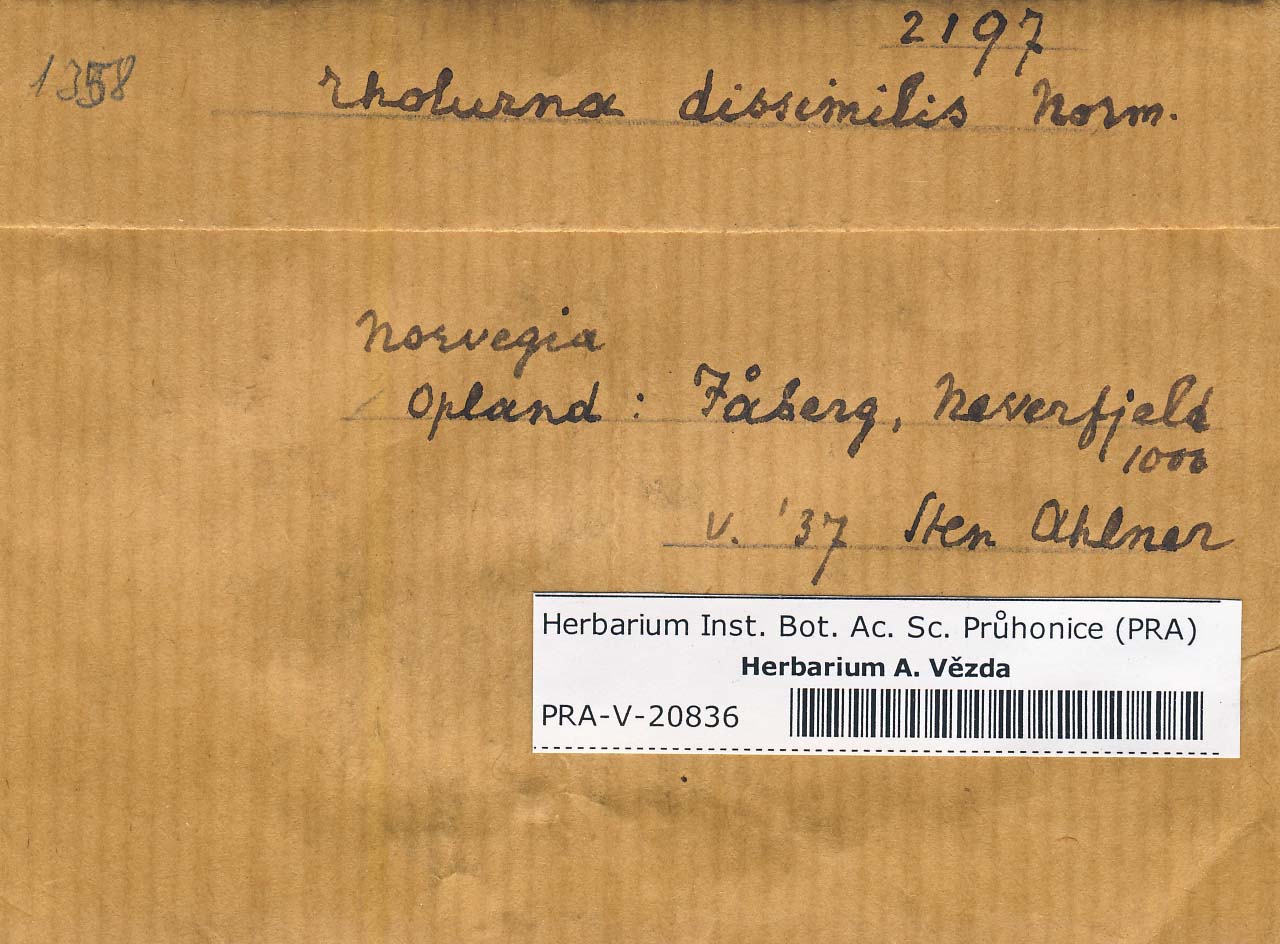 2197
1358
Rholurna dissimilis Norm.
Norvegia
Opland : Fåberg, Neverfjeld
1000
V. '37 Sten Ahlner
Herbarium Inst. Bot. Ac. Sc. Průhonice (PRA)
Herbarium A. Vězda
PRA-V-20836